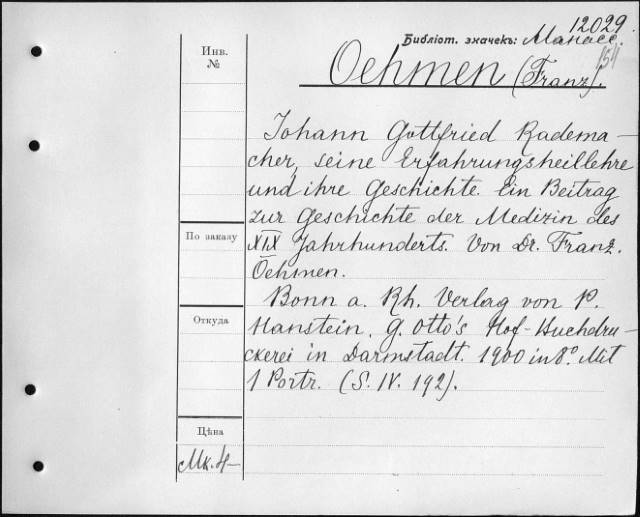 12029.
Библіот. значекъ: Манасс.
Инв.
№
Oehmen (Franz).
Johann Gottfried Radema-
cher, seine Erfahrungsheillehre
und ihre Geschichte. Ein Beitrag
zur Geschichte der Medizin des
По заказу
XIX Jahrhunderts. Von Dr. Franz.
Oehmen.
Bonn a. Rh. Verlag von P.
Откуда
Hanstein. G. Otto's Hof-Buchdru-
ckerei in Darmstadt. 1900 in 8° Mit
1 Portr. (S. IV. 192).
Цѣна
Мк. 4–